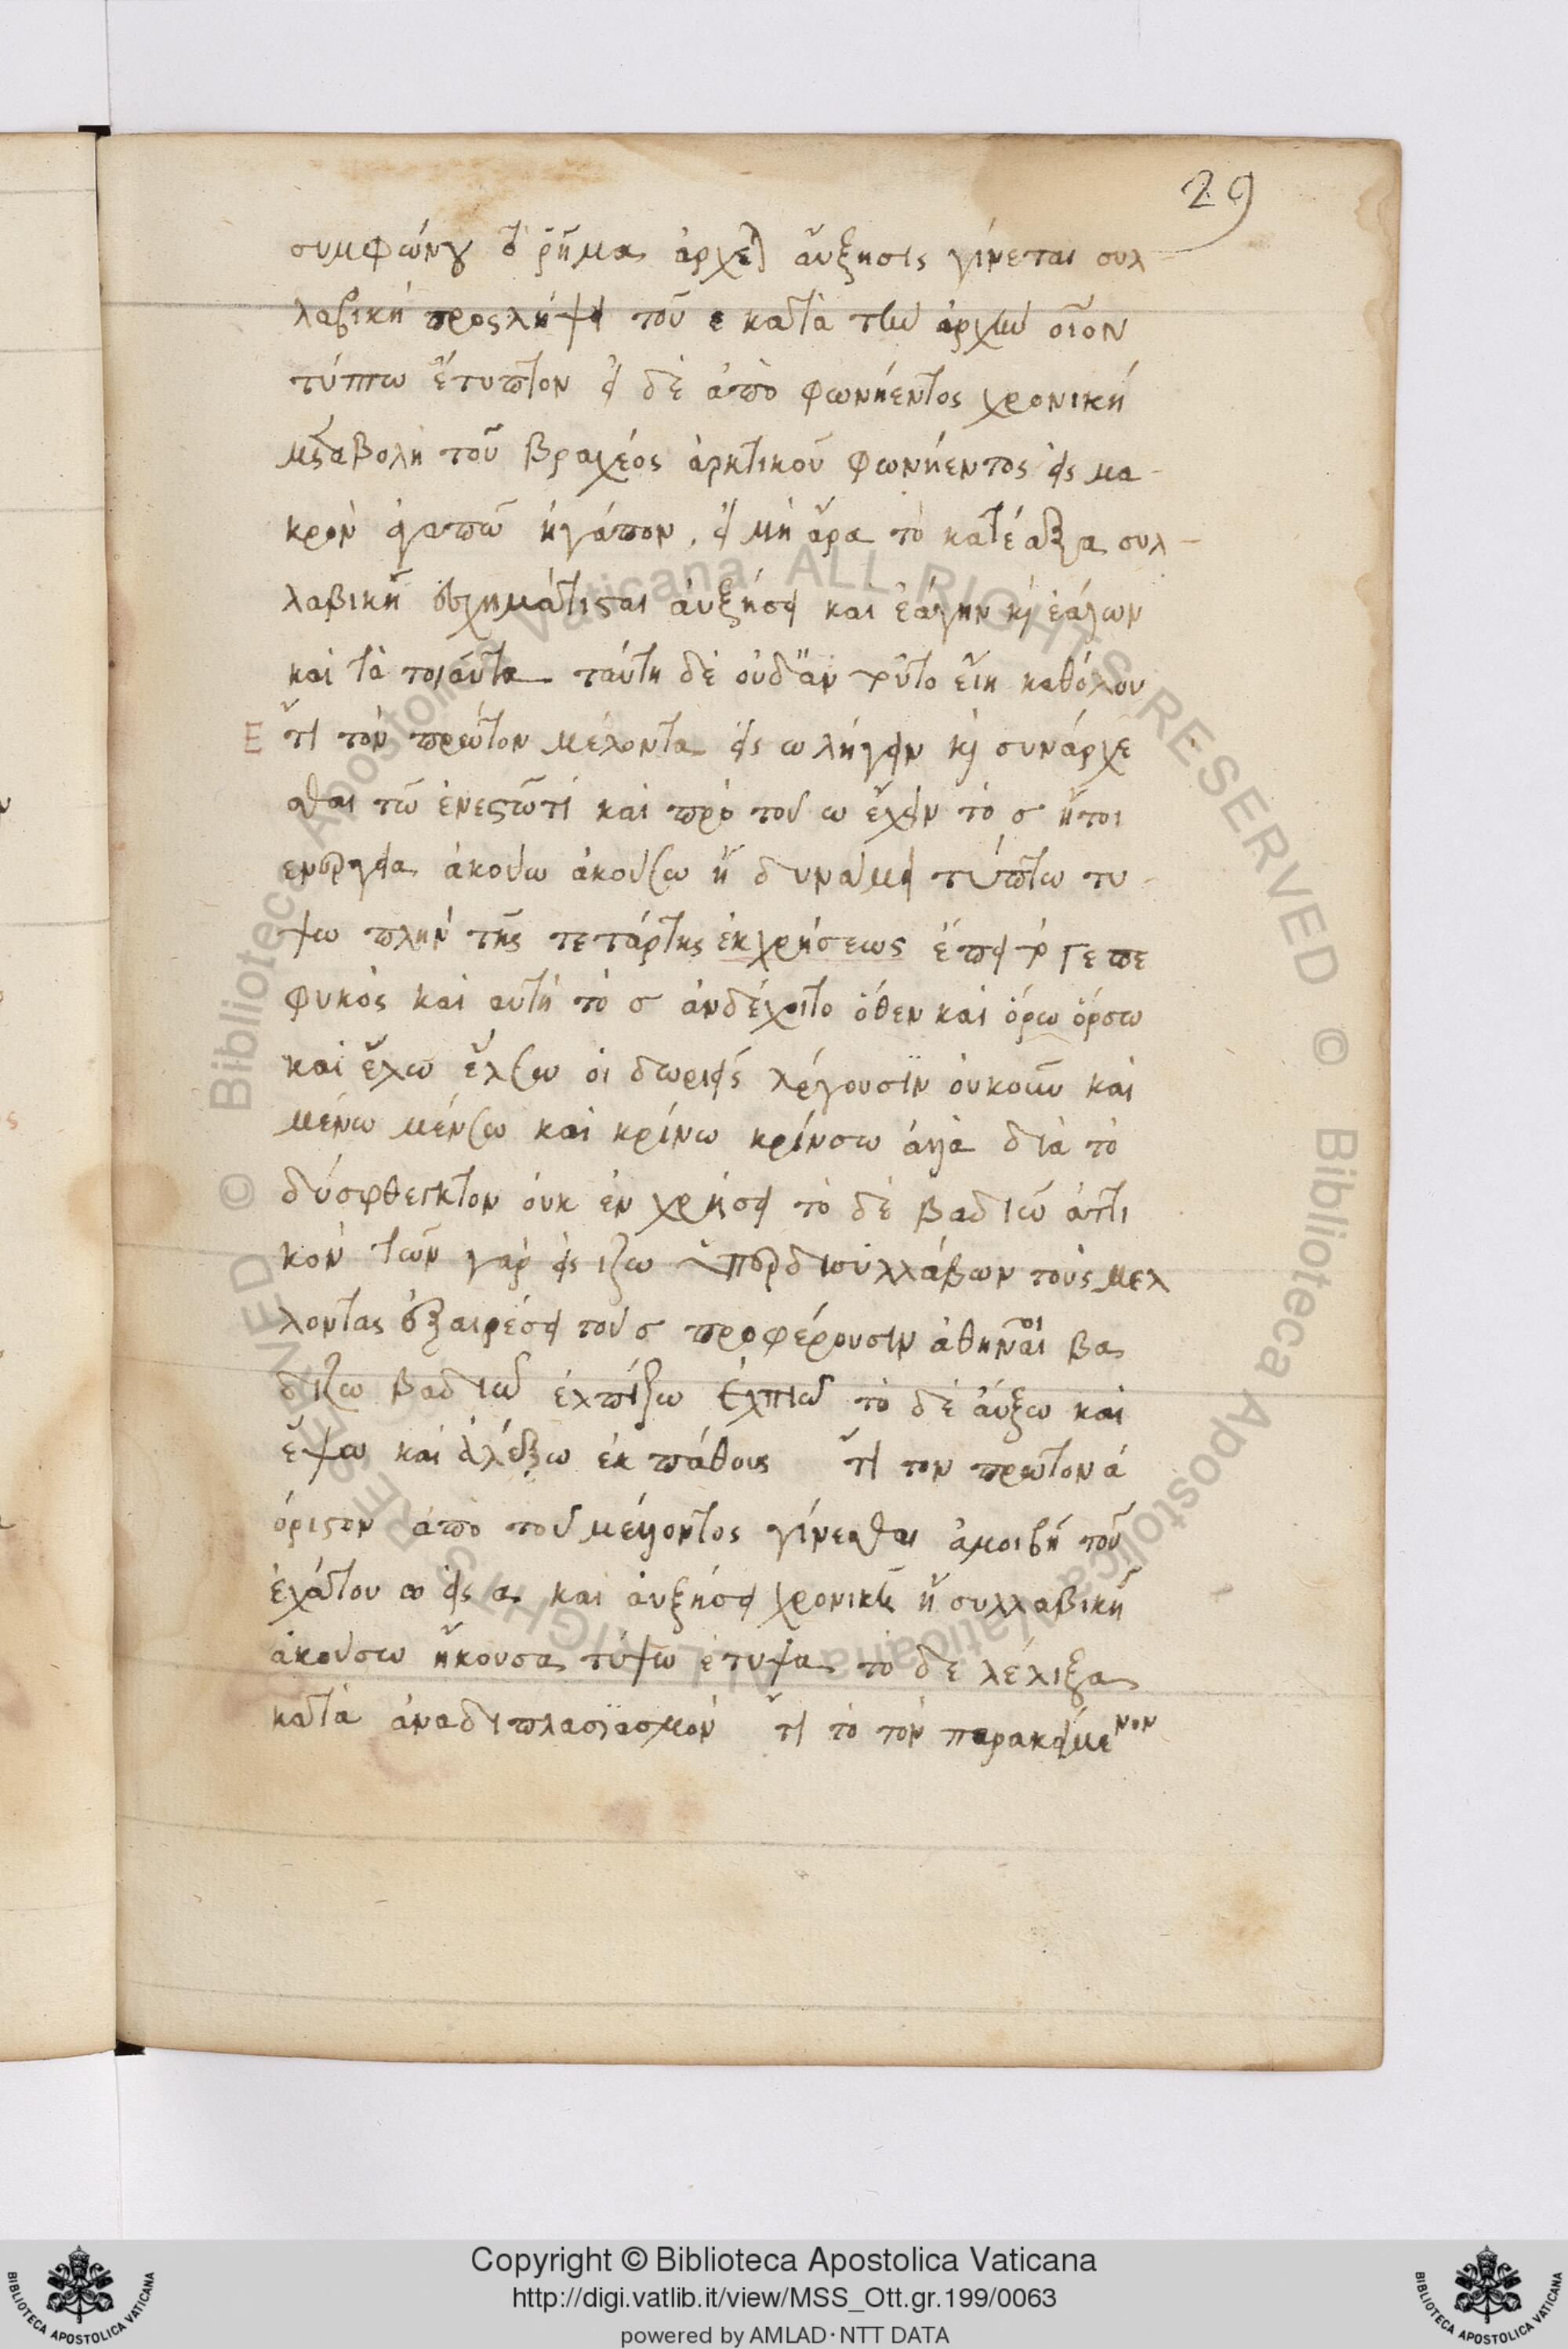 29
συμφώνου τὸ ῥῆμα ἄρχεται αὔξησις γίνεται συλ
λαβικὴ προςλήψει τοῦ ε κατὰ τὴν ἀρχὴν οἷον
τύπτω ἔτυπτον εἰ δὲ ἀπὸ φωνήεντος χρονικὴ
μεταβολὴ τοῦ βραχέος ἀρκτικοῦ φωνήεντος εἰς μα-
κρὸν ἀγαπῶ ἠγάπον, εἰ μὴ ἄρα τὸ κατέαξα συλ-
λαβικῇ ἐσχημάτισται αὐξήσει καὶ ἐάγην καὶ ἑάλων
καὶ τὰ τοιαῦτα ταύτη δὲ οὐδ' ἂν τοῦτο εἴη καθόλου
Ε ἔτι τὸν πρῶτον μέλοντα εἰς ω λήγειν καὶ συνάρχε
σθαι τῶ ἐνεστῶτι καὶ πρὸ τοῦ ω ἔχειν τὸ σ ἤτοι
ενεργεία ἀκούω ἀκούσω ἢ δυνάμει τύπτω τυ
ψω πλὴν τῆς τετάρτης ἐκχρήσεως ἔπει τό γε πε
φυκὸς καὶ αὐτὴ τὸ σ ἀνδέχοιτο ὅθεν καὶ ὄρω ὄρσω
καὶ ἔλω ἔλσω οἱ δωριεῖς λέγουσϊν οὐκοῦν καὶ
μένω μένσω καὶ κρίνω κρίνσω ἀλλὰ διὰ τὸ
δύσφθεγκτον οὐκ ἐν χρήσει τὸ δὲ βαδιῶ ἀττι
κόν τῶν γὰρ εἰς ιζω ὑπερδισυλλάβων τοὺς μελ
λοντας ἐξαιρέσει τοῦ σ προφέρουσιν ἀθηναῖοι βα
διζω βαδιῶ ἐλπίζω ἐλπιῶ τὸ δὲ αὔξω καὶ
ἕψω καὶ ἀλέξω ἐκ πάθους ἔτι τον πρῶτον ἀ
όριστον ἀπὸ τοῦ μέλλοντος γίνεσθαι ἀμοιβῇ τοῦ
ἐχάτου ω εἰς α και αὐξήσει χρονικῇ ἢ συλλαβικῇ
ἀκούσω ἤκουσα τύψω ἔτυψα τὸ δὲ λέλιξα
κατὰ ἀναδιπλασϊασμόν ἔτι τὸ τὸν παρακείμενον
Copyright © Biblioteca Apostolica Vaticana
http://digi.vatlib.it/view/MSS_Ott.gr.199/0063
powered by AMLAD·NTT DATA